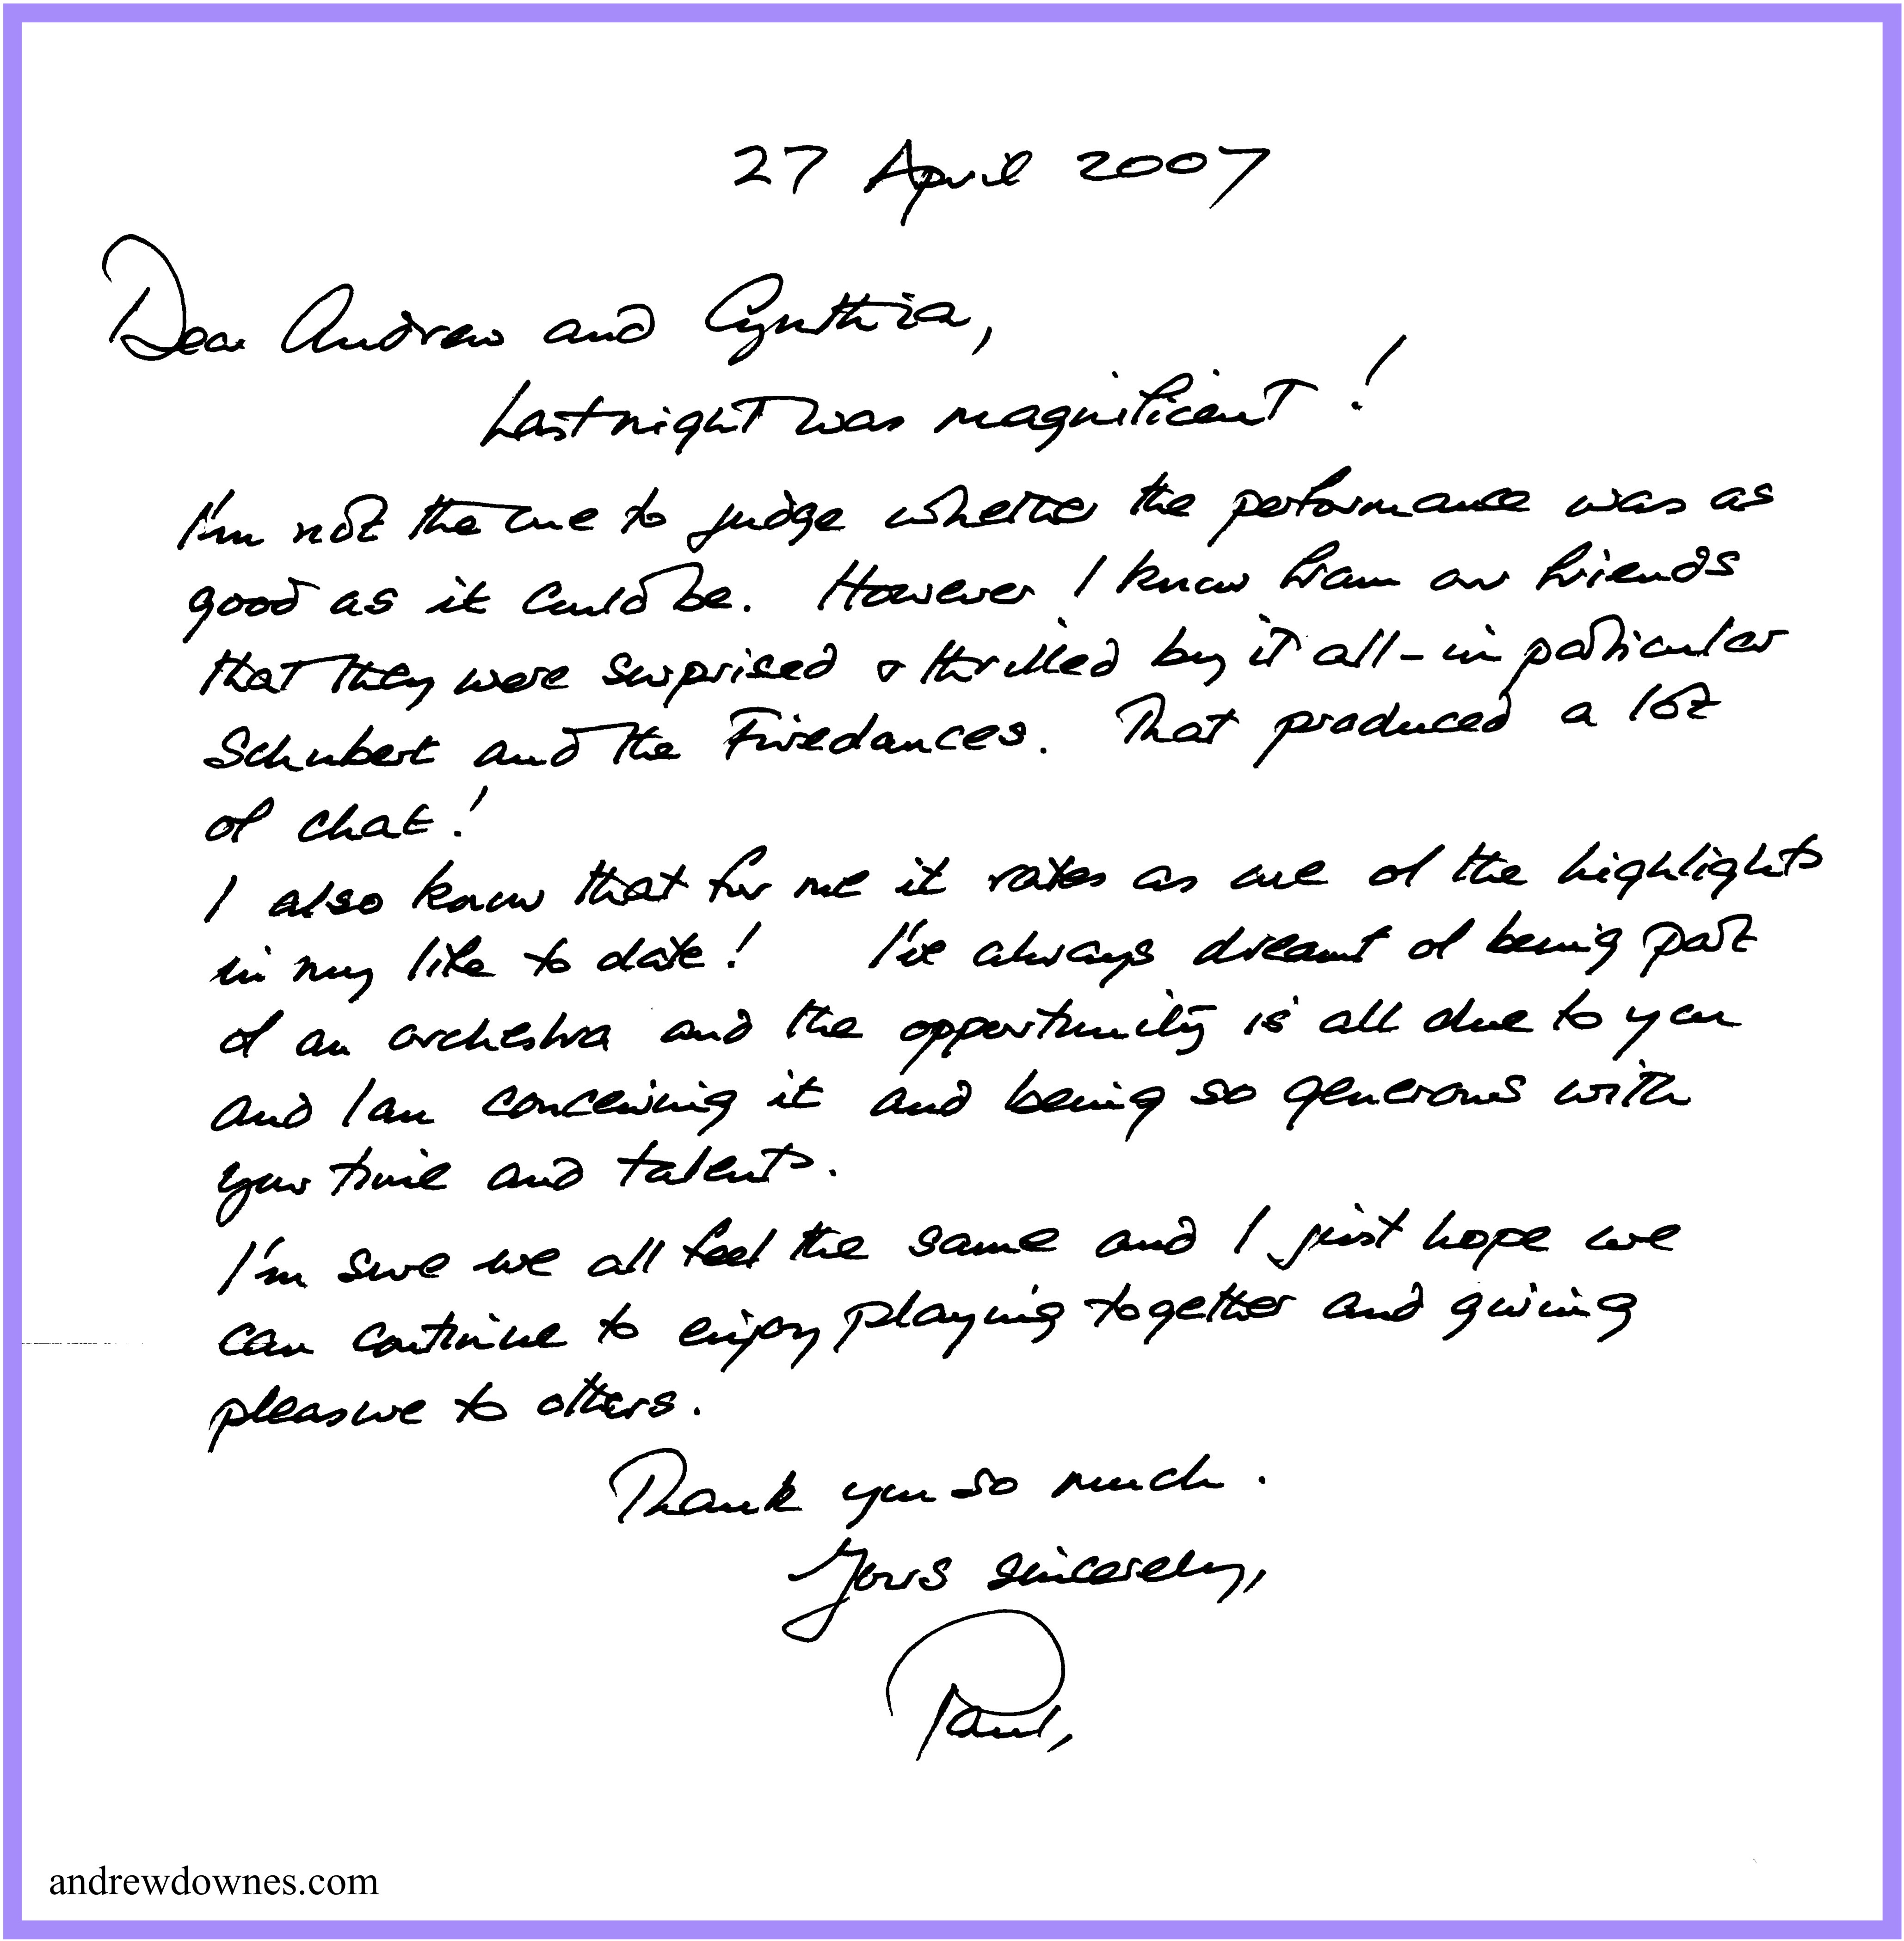 27 April 2007
Dear Andrew and Cynthia,
Last night was magnificent!
I'm not the one to judge whether the performance was as
good as it could be. However I know from our friends
that they were surprised & thrilled by it all - in particular
Schubert and the Firedances. That produced a lot
of chat!
I also know that for me it rates as one of the highlights
in my life to date! I've always dreamt of being part
of an orchestra and the opportunity is all due to you
and Ian conceiving it and being so generous with
your time and talents.
I'm sure we all feel the same and I just hope we
can continue to enjoy playing together and giving
pleasure to others.
Thank you so much.
Yours sincerely,
Paul,
andrewdownes.com